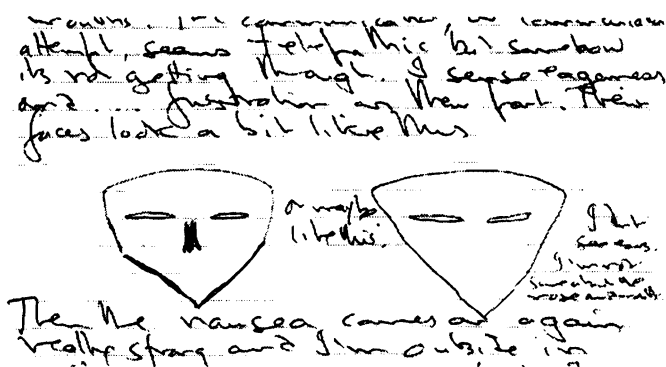 attempt, seems telepathic but somehow
it's not getting through. I sense eagerness
and ... frustration on their part. Their
faces look a bit like this
or maybe
like this.
I
see ears.
I'm not
sure about the
nose and mouth
Then the nausea comes on again
really strong and I'm outside in